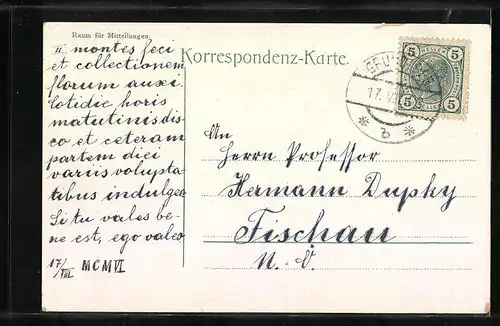 Raum für Mitteilungen.
II. montes feci
et collectionem
florum auxi
Cotidie horis
matutinis dis-
co et ceteram
partem diei
variis volupta-
tibus indulgeo
Si tu vales be-
ne est, ego valeo
17/VIII MCMVI
Korrespondenz-Karte.
17. V
* b *
5 HELLER 5
5 5
An
Herrn Professor
Hermann Dupky
Fischau
N. Ö.